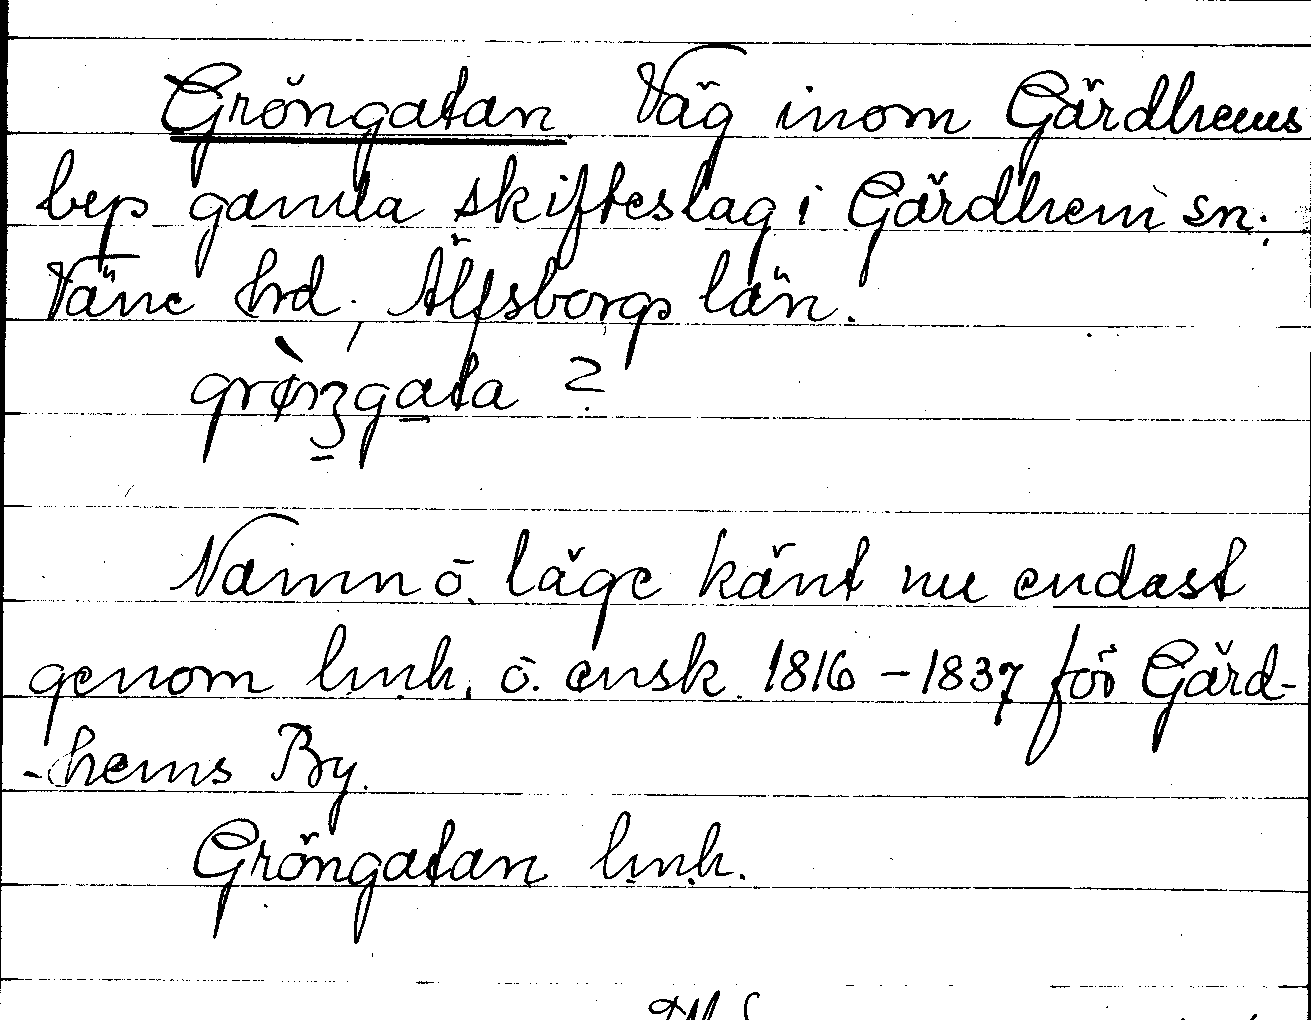 Gröngatan. Väg inom Gärdhems
bys gamla skifteslag i Gärdhem sn.
Väne hrd, Älfsborgs län.
Namn o. läge känt nu endast
genom lmh. o. ensk. 1816-1837 för Gärd-
-hems By.
Gröngatan lmh.